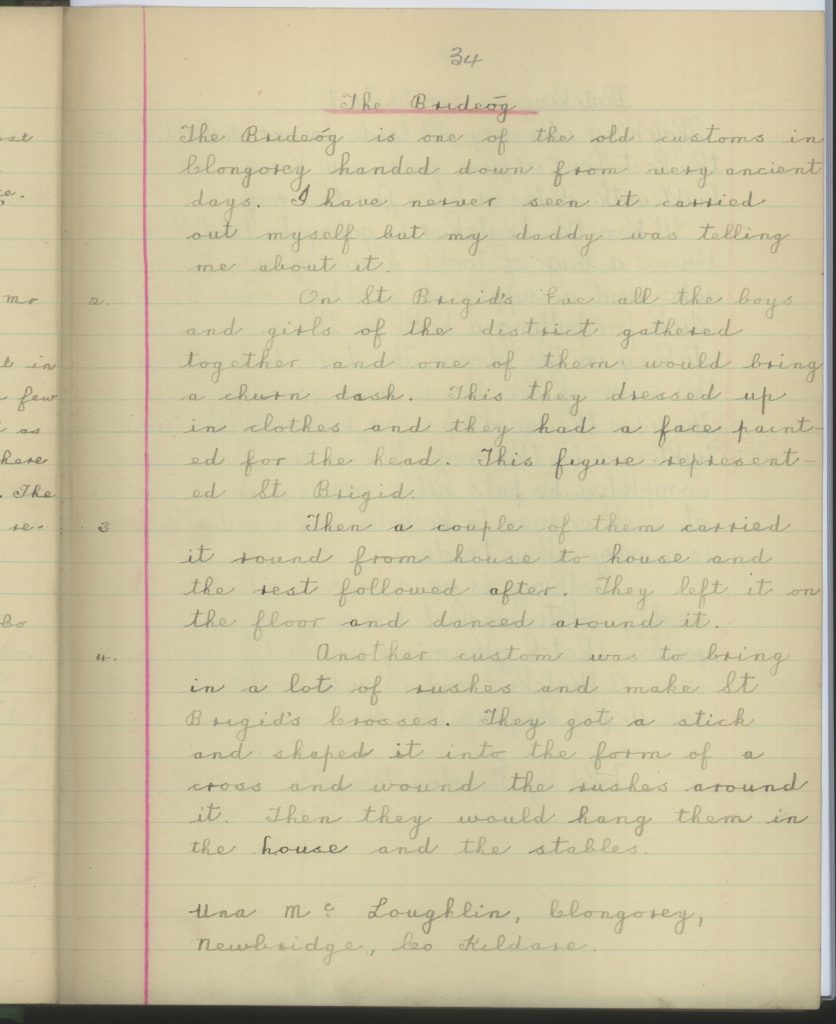 34
The Brideóg
The Brideóg is one of the old customs in
Clongorey handed down from very ancient
days. I have nerver seen it carried
out myself but my daddy was telling
me about it.
2. On St Brigid's Eve all the boys
and girls of the district gathered
together and one of them would bring
a churn dash. This they dressed up
in clothes and they had a face paint-
ed for the head. This figure represent-
ed St Brigid.
3 Then a couple of them carried
it round from house to house and
the rest followed after. They left it on
the floor and danced around it.
4. Another custom was to bring
in a lot of rushes and make St
Brigid's Crosses. They got a stick
and shaped it into the form of a
cross and wound the rushes around
it. Then they would hang them in
the house and the stables.
Una Mc Loughlin, Clongorey,
Newbridge, Co Kildare.
Mr
in
few
as
here
. The
re-
Co